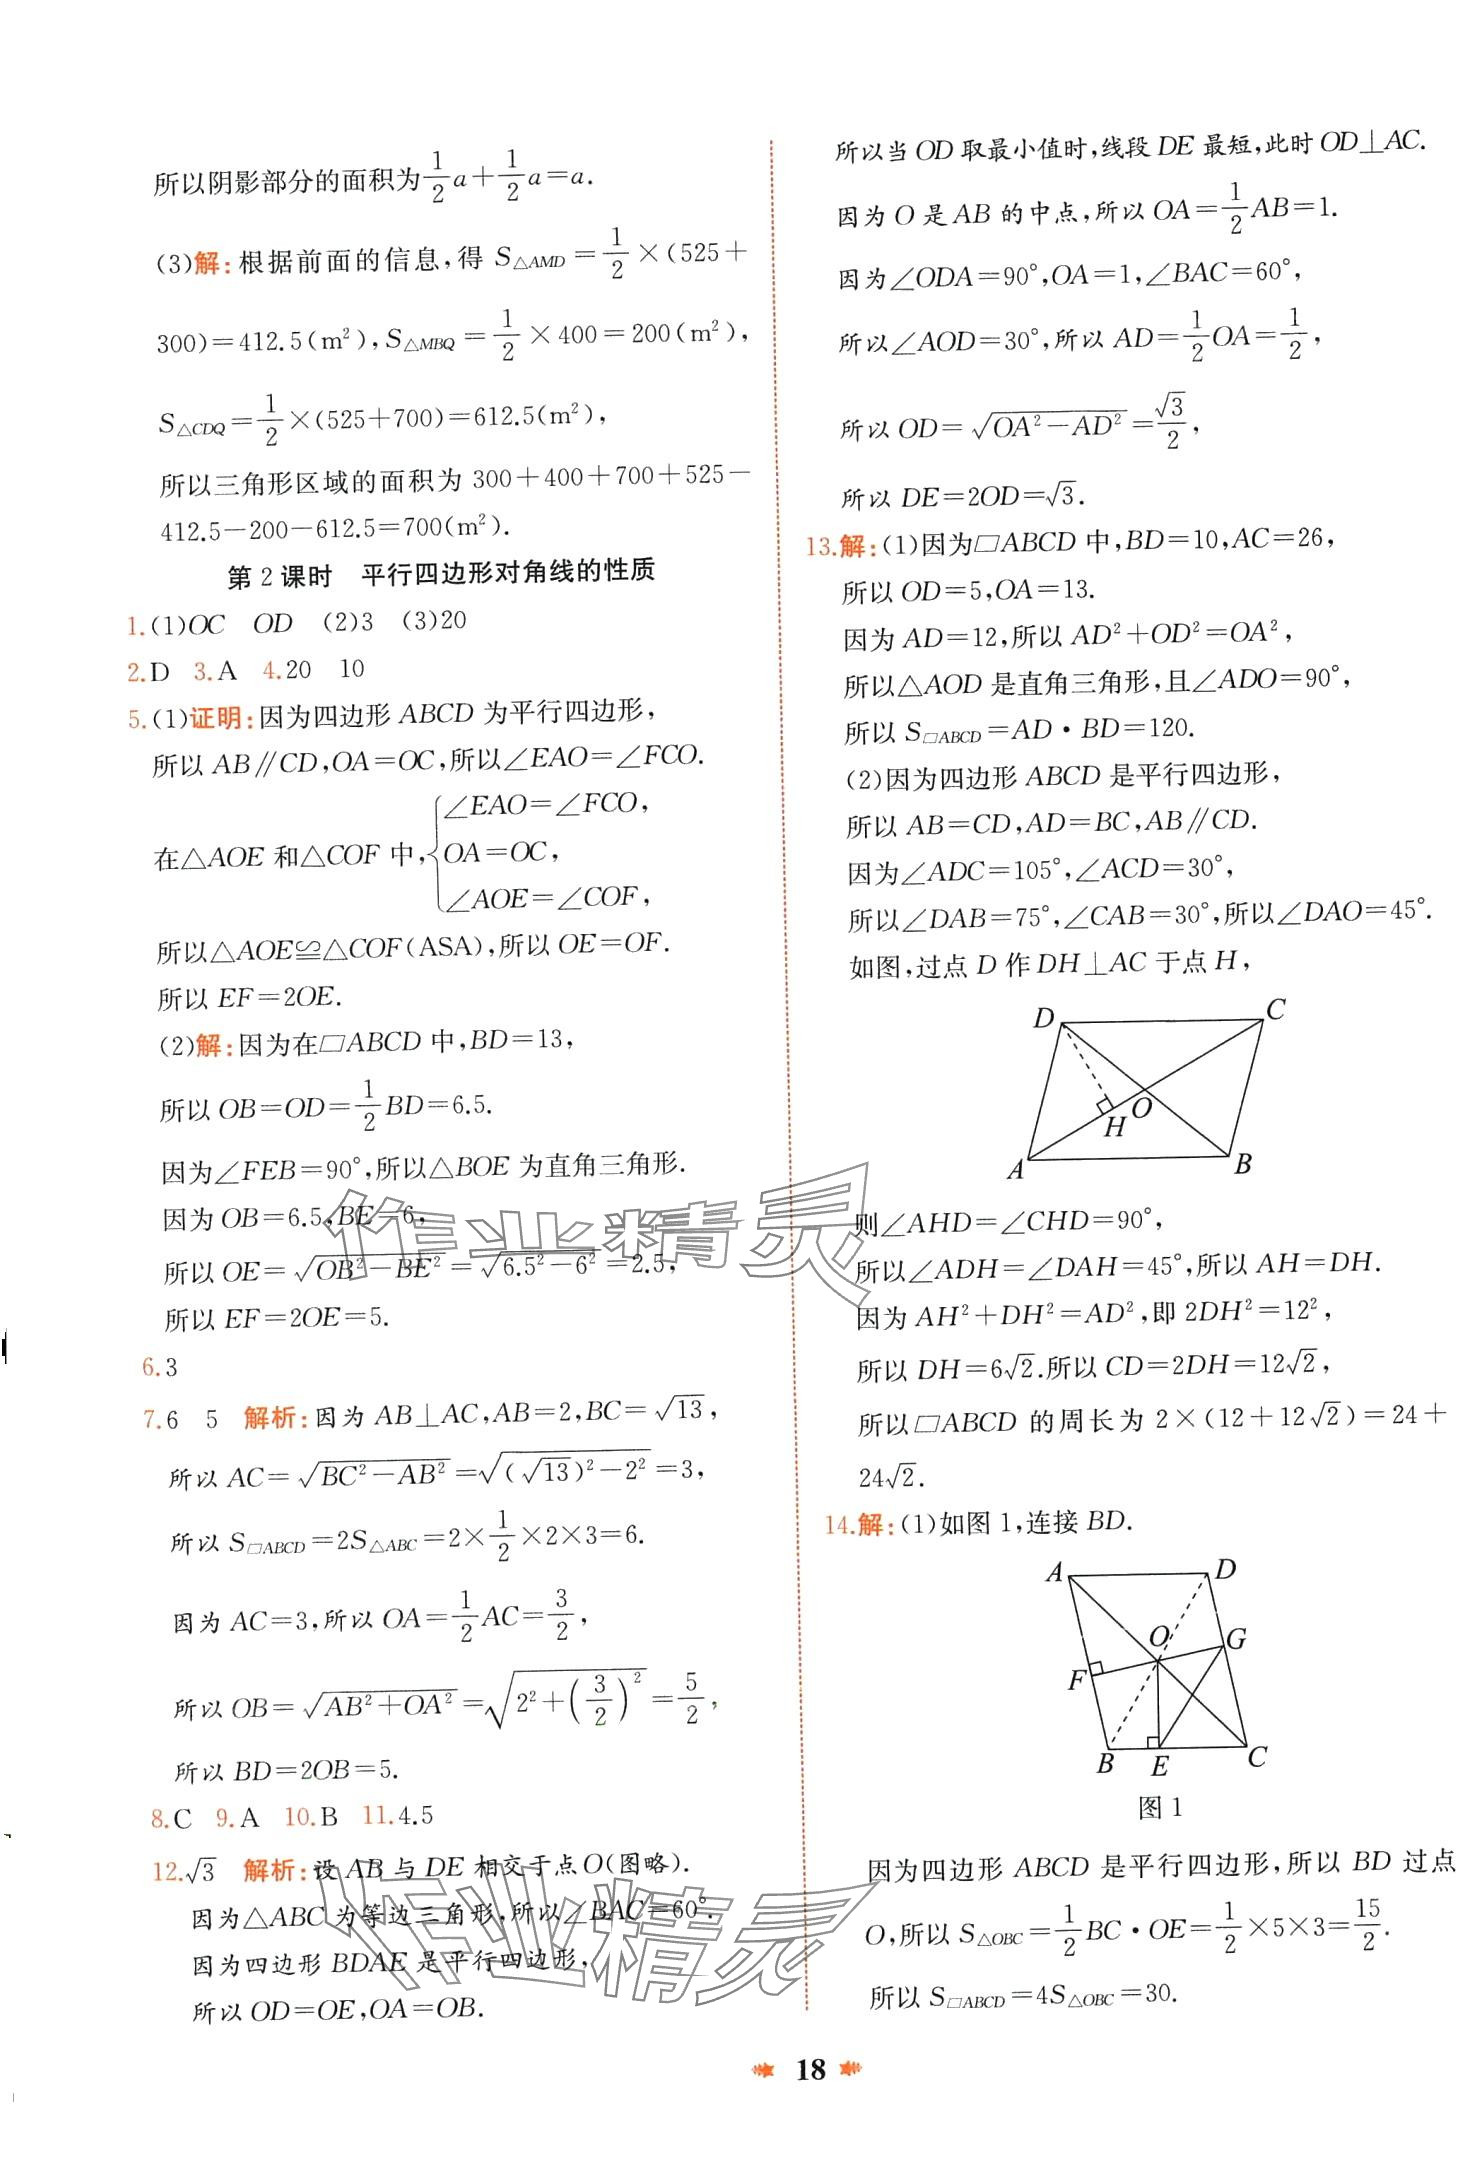 所以阴影部分的面积为1/2a+1/2a=a.
(3)解:根据前面的信息,得 S△AMD=1/2×(525+
300)=412.5(m²),S△MBQ=1/2×400=200(m²),
S△CDQ=1/2×(525+700)=612.5(m²),
所以三角形区域的面积为 300+400+700+525-
412.5-200-612.5=700(m²).
第2课时 平行四边形对角线的性质
1.(1)OC OD (2)3 (3)20
2.D 3.A 4.20 10
5.(1)证明:因为四边形 ABCD 为平行四边形,
所以 AB∥CD,OA=OC,所以∠EAO=∠FCO.
在△AOE 和△COF 中,{∠EAO=∠FCO,
OA=OC,
∠AOE=∠COF,
所以△AOE≌△COF(ASA),所以 OE=OF.
所以 EF=2OE.
(2)解:因为在▱ABCD 中,BD=13,
所以 OB=OD=1/2BD=6.5.
因为∠FEB=90°,所以△BOE 为直角三角形.
因为 OB=6.5,BE=6,
所以 OE=√(OB²-BE²)=√(6.5²-6²)=2.5,
所以 EF=2OE=5.
6.3
7.6 5 解析:因为 AB⊥AC,AB=2,BC=√13,
所以 AC=√(BC²-AB²)=√((√13)²-2²)=3,
所以 S▱ABCD=2S△ABC=2×1/2×2×3=6.
因为 AC=3,所以 OA=1/2AC=3/2,
所以 OB=√(AB²+OA²)=√(2²+(3/2)²)=5/2,
所以 BD=2OB=5.
8.C 9.A 10.B 11.4.5
12.√3 解析:设 AB 与 DE 相交于点 O(图略).
因为△ABC 为等边三角形,所以∠BAC=60°.
因为四边形 BDAE 是平行四边形,
所以 OD=OE,OA=OB.
所以当 OD 取最小值时,线段 DE 最短,此时 OD⊥AC.
因为 O 是 AB 的中点,所以 OA=1/2AB=1.
因为∠ODA=90°,OA=1,∠BAC=60°,
所以∠AOD=30°,所以 AD=1/2OA=1/2,
所以 OD=√(OA²-AD²)=√3/2,
所以 DE=2OD=√3.
13.解:(1)因为▱ABCD 中,BD=10,AC=26,
所以 OD=5,OA=13.
因为 AD=12,所以 AD²+OD²=OA²,
所以△AOD 是直角三角形,且∠ADO=90°,
所以 S▱ABCD=AD·BD=120.
(2)因为四边形 ABCD 是平行四边形,
所以 AB=CD,AD=BC,AB∥CD.
因为∠ADC=105°,∠ACD=30°,
所以∠DAB=75°,∠CAB=30°,所以∠DAO=45°.
如图,过点 D 作 DH⊥AC 于点 H,
D C
O
H
A B
则∠AHD=∠CHD=90°,
所以∠ADH=∠DAH=45°,所以 AH=DH.
因为 AH²+DH²=AD²,即 2DH²=12²,
所以 DH=6√2.所以 CD=2DH=12√2,
所以▱ABCD 的周长为 2×(12+12√2)=24+
24√2.
14.解:(1)如图1,连接 BD.
A D
O G
F
B E C
图1
因为四边形 ABCD 是平行四边形,所以 BD 过点
O,所以 S△OBC=1/2BC·OE=1/2×5×3=15/2.
所以 S▱ABCD=4S△OBC=30.
作业精灵
作业精灵
18